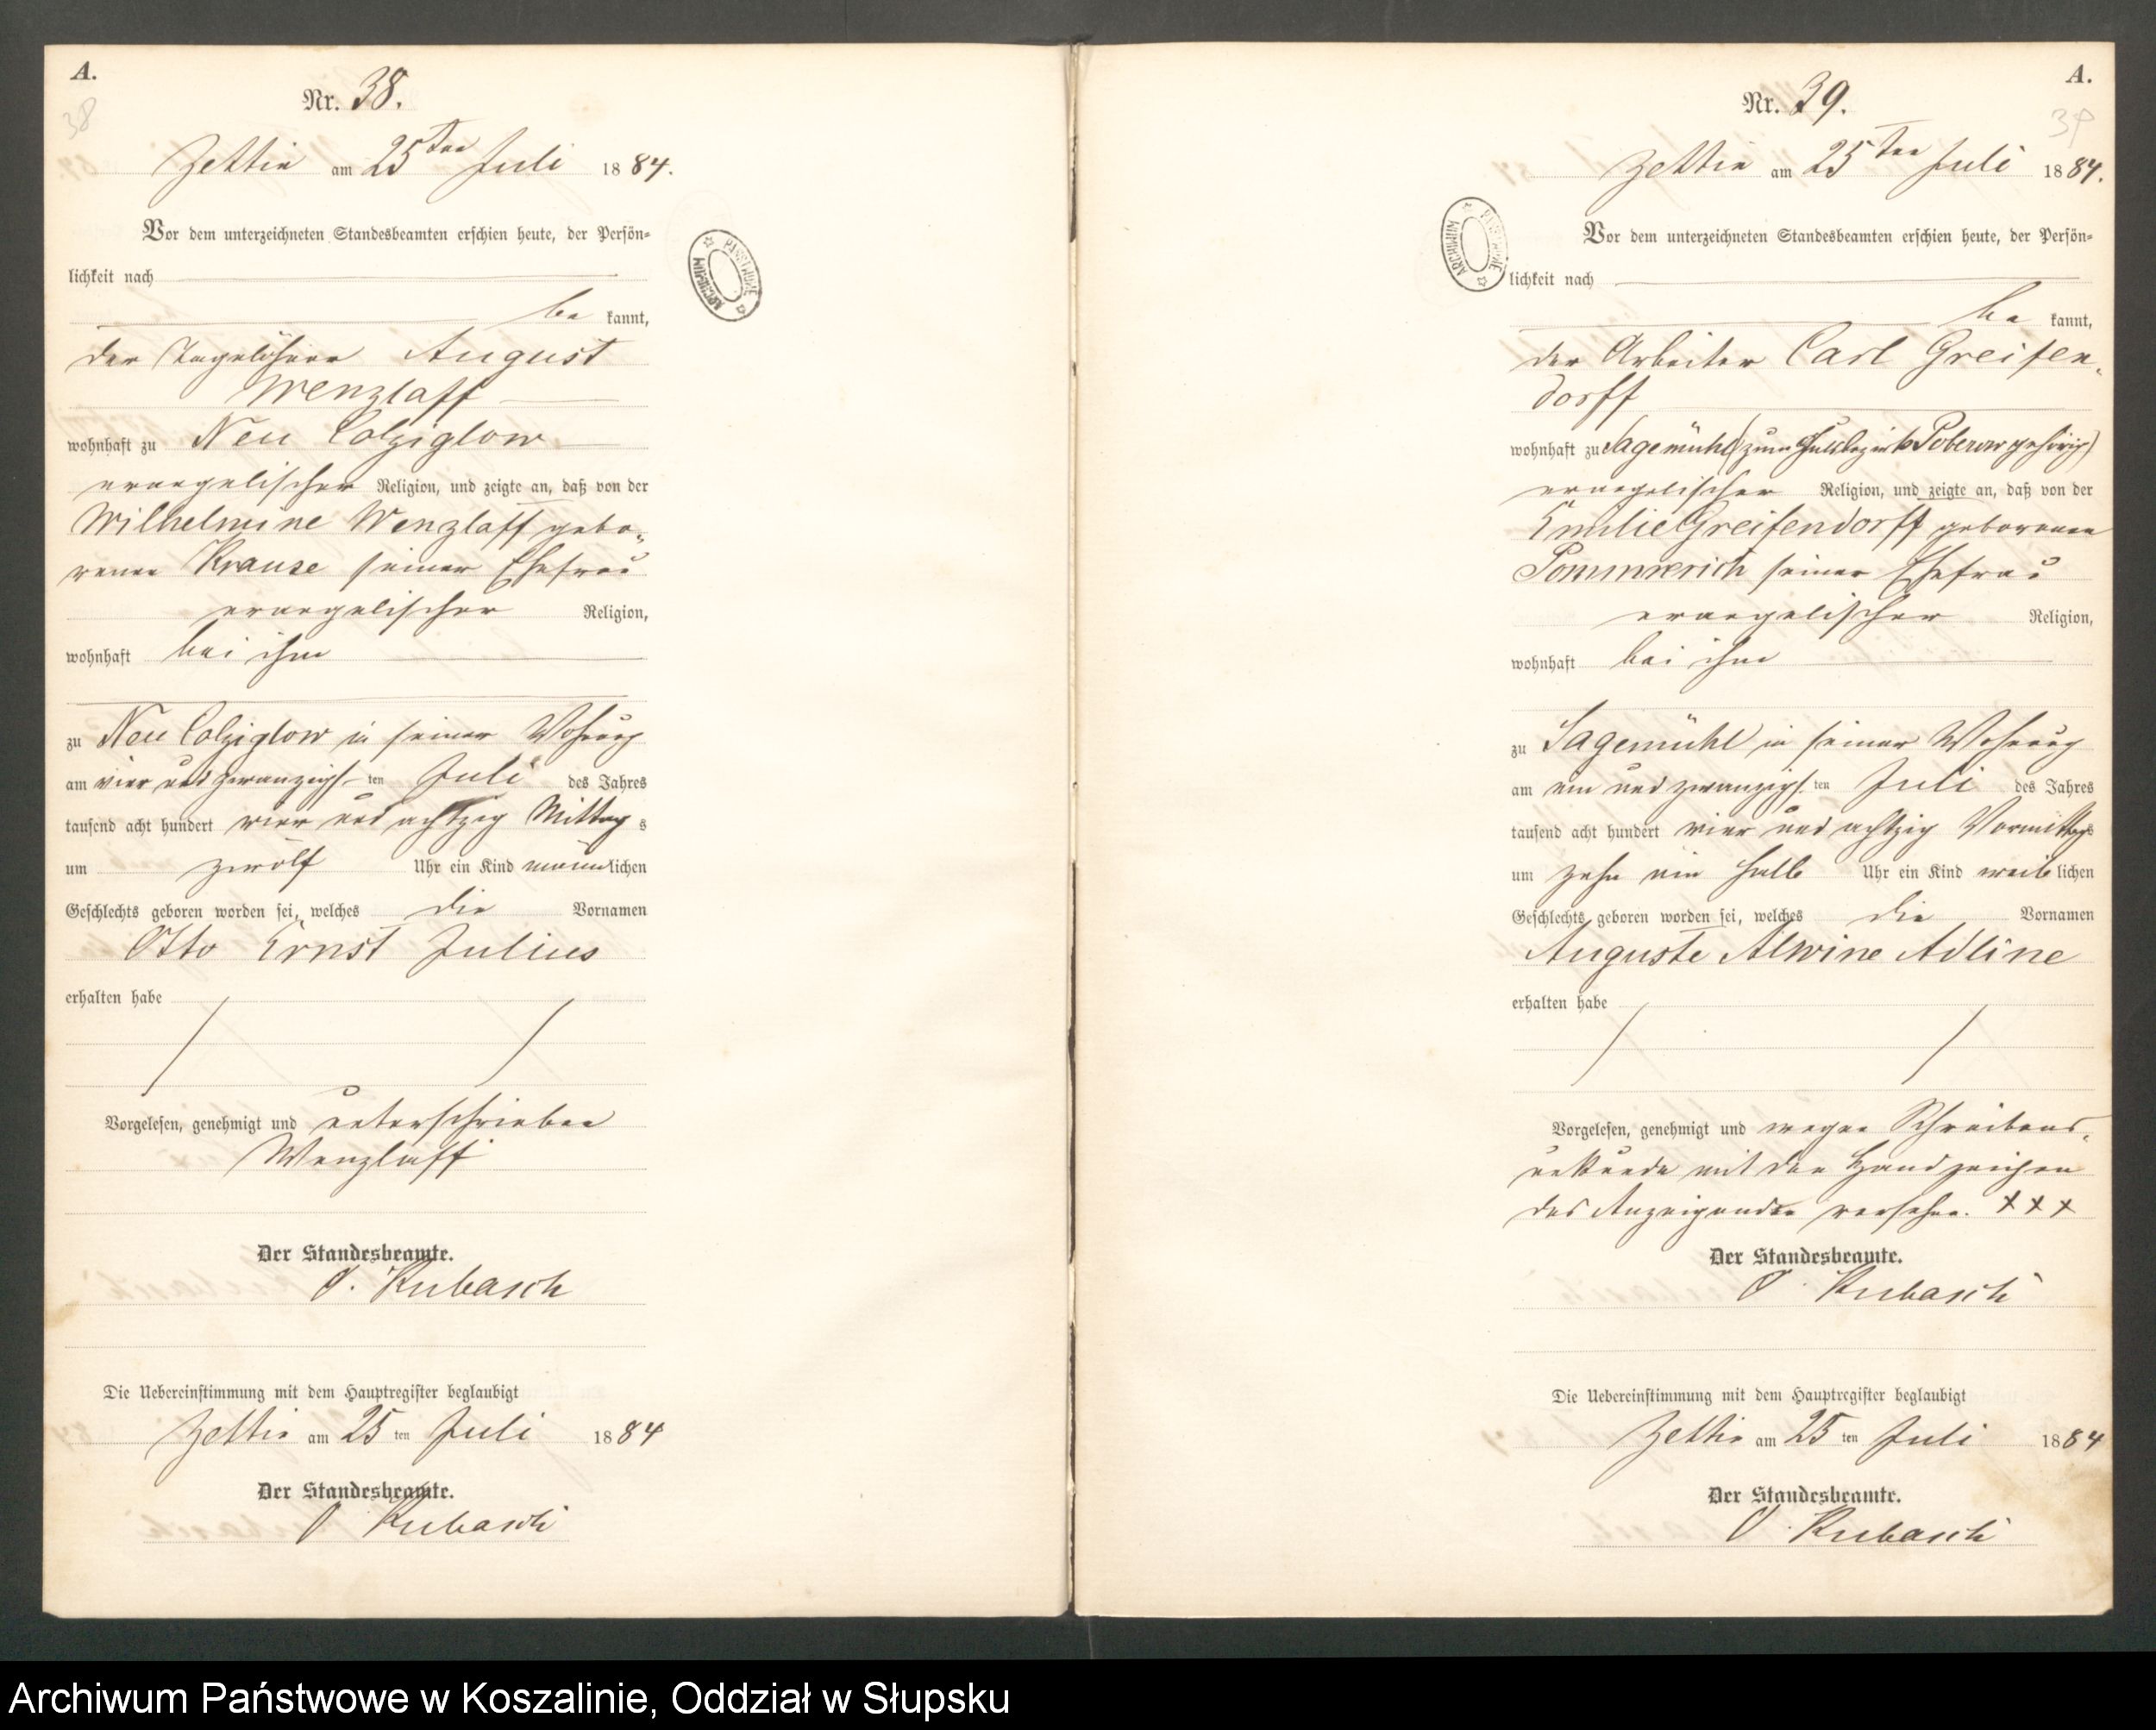 A.
38
Nr. 38.
Zettin am 25ten Juli 1884.
Vor dem unterzeichneten Standesbeamten erschien heute, der Persön-
lichkeit nach
be kannt,
der Tagelöhner August
Wenzlaff
wohnhaft zu Neu Colziglow
evangelischer Religion, und zeigte an, daß von der
Wilhelmine Wenzlaff gebo-
renen Krause seiner Ehefrau
evangelischer Religion,
wohnhaft bei ihm
zu Neu Colziglow in seiner Wohnung
am vier und zwanzigsten Juli des Jahres
tausend acht hundert vier und achtzig Mittags
um zwölf Uhr ein Kind männlichen
Geschlechts geboren worden sei, welches die Vornamen
Otto Ernst Julius
erhalten habe
Vorgelesen, genehmigt und unterschrieben
Wenzlaff
Der Standesbeamte.
O. Kubasch
Die Uebereinstimmung mit dem Hauptregister beglaubigt
Zettin am 25 ten Juli 1884
Der Standesbeamte.
O Kubasch
ARCHIWUM PAŃSTWOWE
A.
39
Nr. 39.
Zettin am 25ten Juli 1884.
Vor dem unterzeichneten Standesbeamten erschien heute, der Persön-
lichkeit nach
be kannt,
der Arbeiter Carl Greifen-
dorff
wohnhaft zu Sagemühl (zum Gutsbezirk Poberow gehörig)
evangelischer Religion, und zeigte an, daß von der
Emilie Greifendorff geborenen
Pommerich seiner Ehefrau
evangelischer Religion,
wohnhaft bei ihm
zu Sagemühl in seiner Wohnung
am ein und zwanzigsten Juli des Jahres
tausend acht hundert vier und achtzig Vormittags
um zehn ein halb Uhr ein Kind weiblichen
Geschlechts geboren worden sei, welches die Vornamen
Auguste Alwine Adline
erhalten habe
Vorgelesen, genehmigt und wegen Schreibens-
unkunde mit den Handzeichen
des Anzeigenden versehen. + + +
Der Standesbeamte.
O. Kubasch
Die Uebereinstimmung mit dem Hauptregister beglaubigt
Zettin am 25 ten Juli 1884
Der Standesbeamte.
O. Kubasch
ARCHIWUM PAŃSTWOWE
Archiwum Państwowe w Koszalinie, Oddział w Słupsku